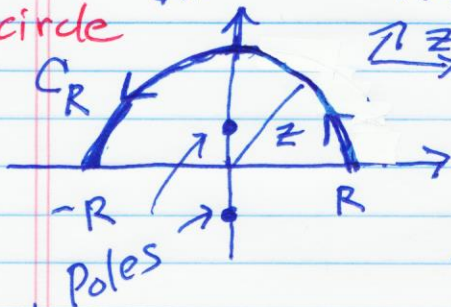 circle
C_R
z
z
-R
R
Poles